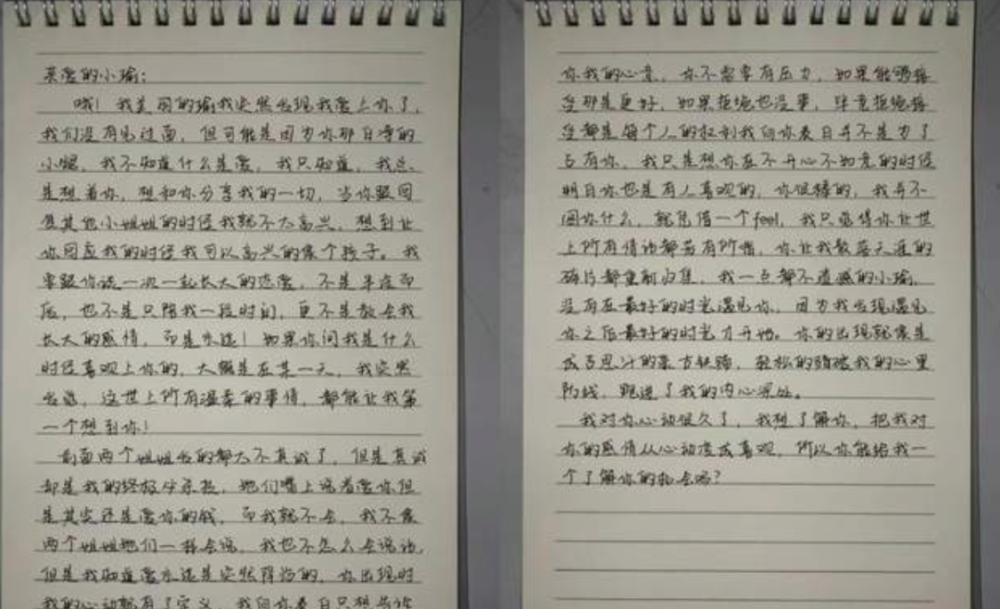 亲爱的小瑜：
哦！我美丽的瑜我突然发现我爱上你了，
我们没有见过面，但可能是因为你那白净的
小腿，我不知道什么是爱，我只知道，我总
是想着你，想和你分享我的一切，当你跟回
复其他小姐姐的时候我就不太高兴，想到让
你回应我的时候我可以高兴的像个孩子。我
要跟你谈一次一起长大的恋爱，不是半途而
废，也不是只陪我一段时间，更不是教会我
长大的感情，而是永远！如果你问我是什么
时候喜欢上你的，大概是在某一天，我突然
发觉，这世上所有温柔的事情，都能让我第
一个想到你！
前面两个姐姐发的都太不真诚了，但是真诚
却是我的终极必杀技，她们嘴上说着爱你但
是其实还是爱你的钱，而我就不会，我不像
两个姐姐她们一样会说，我也不怎么会说话，
但是我知道爱永远是突然降临的，你出现时
我的心动就有了定义，我向你表白只想告诉
你我的心意，你不需要有压力，如果能够接
受那是更好，如果拒绝也没事，毕竟拒绝接
受都是每个人的权利我向你表白并不是为了
占有你，我只是想你在不开心不如意的时候
明白你也是有人喜欢的，你很棒的，我并不
图你什么，就凭借一个feel，我只觉得你让世
上所有情话都若有所指，你让我散落天涯的
碎片都重新归集，我一点都不遗憾的小瑜，
没有在最好的时光遇见你，因为我发现遇见
你之后最好的时光才开始。你的出现就像是
成吉思汗的蒙古铁骑，轻松的踏破我的心里
防线，跑进了我的内心深处。
我对你心动很久了，我想了解你，把我对
你的感情从心动变成喜欢，所以你能给我一
个了解你的机会吗？